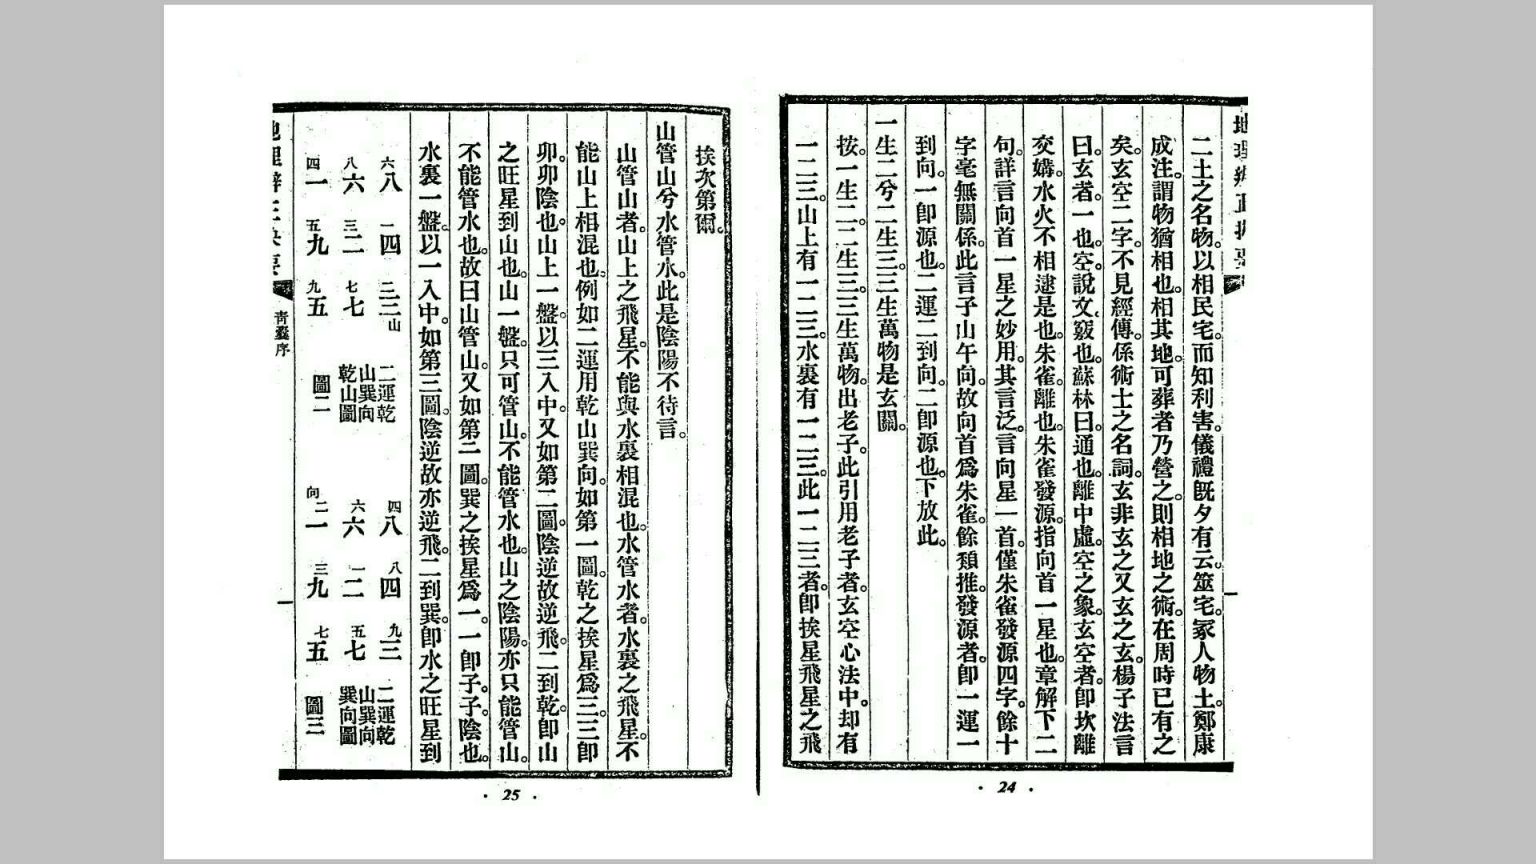 地理辨正抉要
一
二土之名物。以相民宅。而知利害。儀禮旣夕有云。筮宅。冢人物土。鄭康
成注。謂物猶相也。相其地。可葬者乃營之。則相地之術。在周時已有之
矣。玄空二字。不見經傳。係術士之名詞。玄非玄之又玄之玄。楊子法言
曰。玄者。一也。空說文。竅也。蘇林曰。通也。離中虛。空之象。玄空者。卽坎離
交媾。水火不相逮是也。朱雀離也。朱雀發源。指向首一星也。章解下二
句。詳言向首一星之妙用。其言泛。言向星一首。僅朱雀發源四字。餘十
字毫無關係。此言子山午向。故向首爲朱雀。餘類推。發源者。卽一運一
到向。一卽源也。二運二到向。二卽源也。下放此。
一生二兮二生三。三生萬物是玄關。
按。一生二。二生三。三生萬物。出老子。此引用老子者。玄空心法中。却有
一二三。山上有一二三。水裏有一二三。此一二三者。卽挨星飛星之飛
24
挨次第爾。
山管山兮水管水。此是陰陽不待言。
山管山者。山上之飛星。不能與水裏相混也。水管水者。水裏之飛星。不
能山上相混也。例如二運用乾山巽向。如第一圖。乾之挨星爲三。三卽
卯。卯陰也。山上一盤。以三入中。又如第二圖。陰逆故逆飛。二到乾。卽山
之旺星到山也。山一盤。只可管山。不能管水也。山之陰陽。亦只能管山。
不能管水也。故曰山管山。又如第二圖。巽之挨星爲一。一卽子。子。陰也。
水裏一盤。以一入中。如第三圖。陰逆故亦逆飛。二到巽。卽水之旺星到
六八 一四 二三山
八六 三二 七七
四一 五九 九五
二運乾
山巽向
乾山圖
圖二
四八 八四 九三
六六 一二 五七
向二一 三九 七五
二運乾
山巽向
巽向圖
圖三
青囊序
一
25